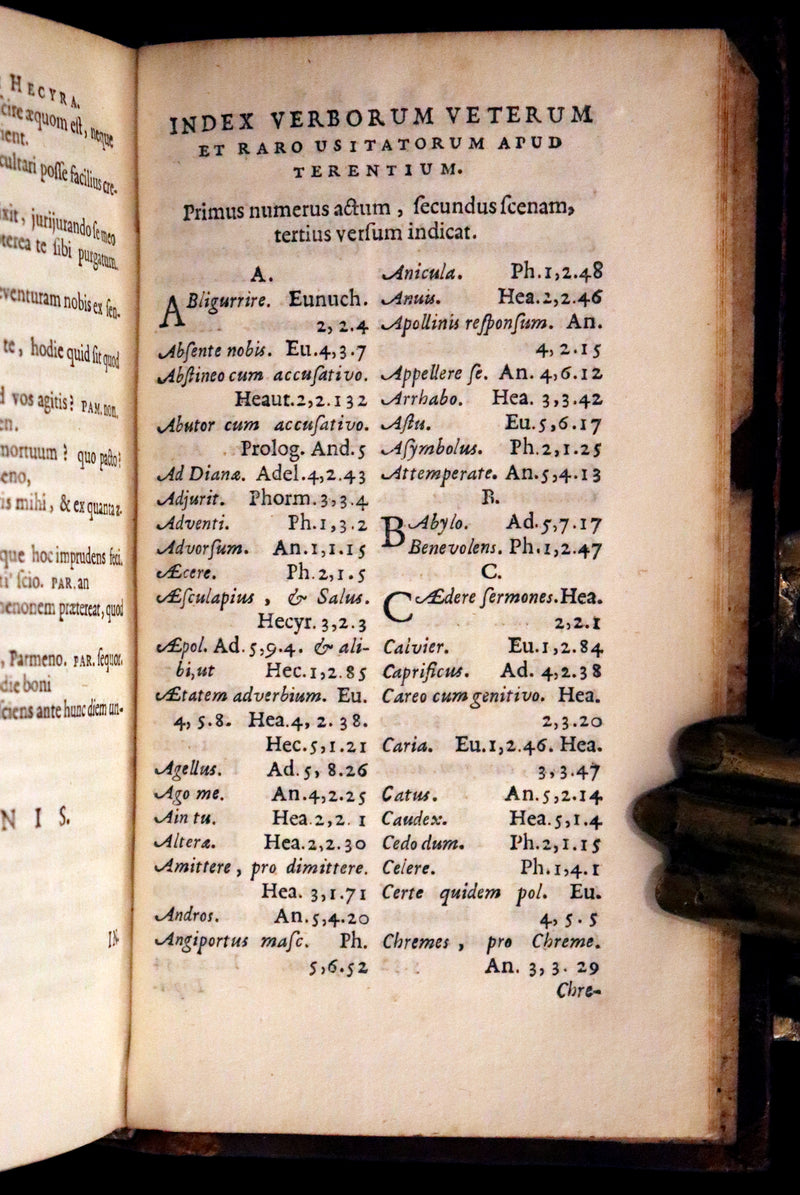 HECYRA.
æquom est, neque
ient.
cultari posse facilius cre-
xit, jurijurando se meo
terea te sibi purgatum.
venturam nobis ex sen.
te, hodie quid sit quod
vos agitis? PAM. non.
en.
mortuum? quo pacto?
eno,
is mihi, & ex quanta æ-
que hoc imprudens feci.
scio. PAR. an
enonem prætereat, quod
, Parmeno. PAR. sequor.
die boni
ciens ante hunc diem un-
N I S.
IN-
INDEX VERBORUM VETERUM
ET RARO USITATORUM APUD
TERENTIUM.
Primus numerus actum, ſecundus ſcenam,
tertius verſum indicat.
A.
ABligurrire. Eunuch.
2, 2.4
Abſente nobis. Eu.4,3.7
Abſtineo cum accuſativo.
Heaut.2,2.132
Abutor cum accuſativo.
Prolog. And.5
Ad Dianæ. Adel.4,2.43
Adjurit. Phorm.3,3.4
Adventi. Ph.1,3.2
Advorſum. An.1,1.15
Æcere. Ph.2,1.5
Æſculapius, & Salus.
Hecyr.3,2.3
Æpol. Ad.5,9.4. & ali-
bi, ut Hec.1,2.85
Ætatem adverbium. Eu.
4, 5.8. Hea.4, 2.38.
Hec.5,1.21
Agellus. Ad.5, 8.26
Ago me. An.4,2.25
Ain tu. Hea.2,2. 1
Alteræ. Hea.2,2.30
Amittere, pro dimittere.
Hea. 3,1.71
Andros. An.5,4.20
Angiportus maſc. Ph.
5,6.52
Anicula. Ph.1,2.48
Anuis. Hea.2,2.46
Apollinis reſponſum. An.
4, 2.15
Appellere ſe. An. 4,6.12
Arrhabo. Hea. 3,3.42
Aſtu. Eu.5,6.17
Aſymbolus. Ph.2,1.25
Attemperate. An.5,4.13
B.
BAbylo. Ad.5,7.17
Benevolens. Ph.1,2.47
C.
CÆdere ſermones. Hea.
2,2.1
Calvier. Eu.1,2.84
Caprificus. Ad. 4,2.38
Careo cum genitivo. Hea.
2,3.20
Caria. Eu.1,2.46. Hea.
3,3.47
Catus. An.5,2.14
Caudex. Hea.5,1.4
Cedo dum. Ph.2,1.15
Celere. Ph.1,4.1
Certe quidem pol. Eu.
4, 5.5
Chremes, pro Chreme.
An. 3, 3. 29
Chre-